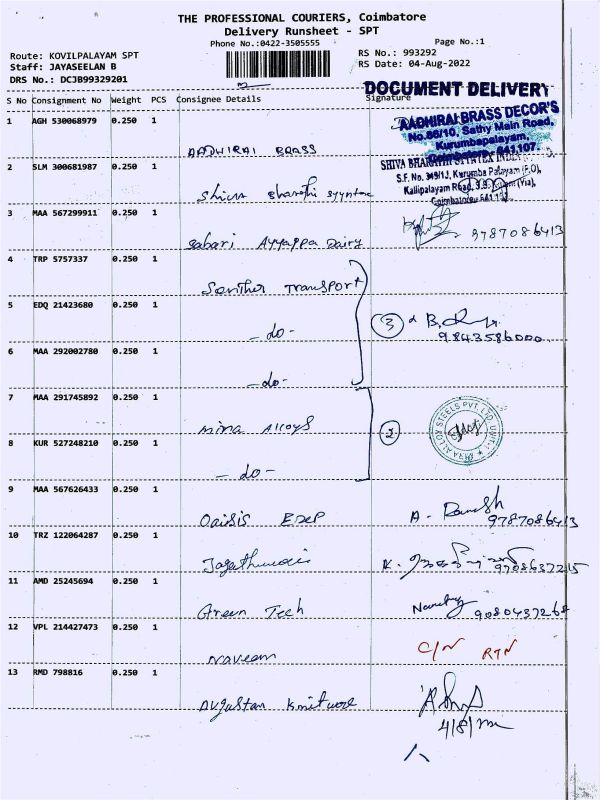 THE PROFESSIONAL COURIERS, Coimbatore
Delivery Runsheet - SPT
Phone No.:0422-3505555
Page No.:1
Route: KOVILPALAYAM SPT
RS No.: 993292
Staff: JAYASEELAN B
RS Date: 04-Aug-2022
DRS No.: DCJB99329201
DOCUMENT DELIVERY
S No Consignment No Weight PCS Consignee Details Signature
AADHIRAI BRASS DECOR'S
No.86/10, Sathy Main Road,
Kurumbapalayam,
641,107
1 AGH 530068979 0.250 1
AADHIRAI BRASS
SHIVA BHARATHI
S.F. No. 349/1J, Kurumba Palayam (P.O),
Kallipalayam Road, (Via),
Coimbatore 641
2 SLM 300681987 0.250 1
Shiva bharathi
3 MAA 567299911 0.250 1
Sabari Ayyappa Dairy 9787086413
4 TRP 5757337 0.250 1
Transport
5 EDQ 21423680 0.250 1
-do- 3 9843586000
6 MAA 292002780 0.250 1
-do-
7 MAA 291745892 0.250 1
Alloys 2
ALLOY STEELS PVT. LTD. UNIT-1
8 KUR 527248210 0.250 1
-do-
9 MAA 567626433 0.250 1
A. Ramesh 9787086413
10 TRZ 122064287 0.250 1
9708637215
11 AMD 25245694 0.250 1
Green Tech 9080437268
12 VPL 214427473 0.250 1
Naveen C/N RTN
13 RMD 798816 0.250 1
4/8/22